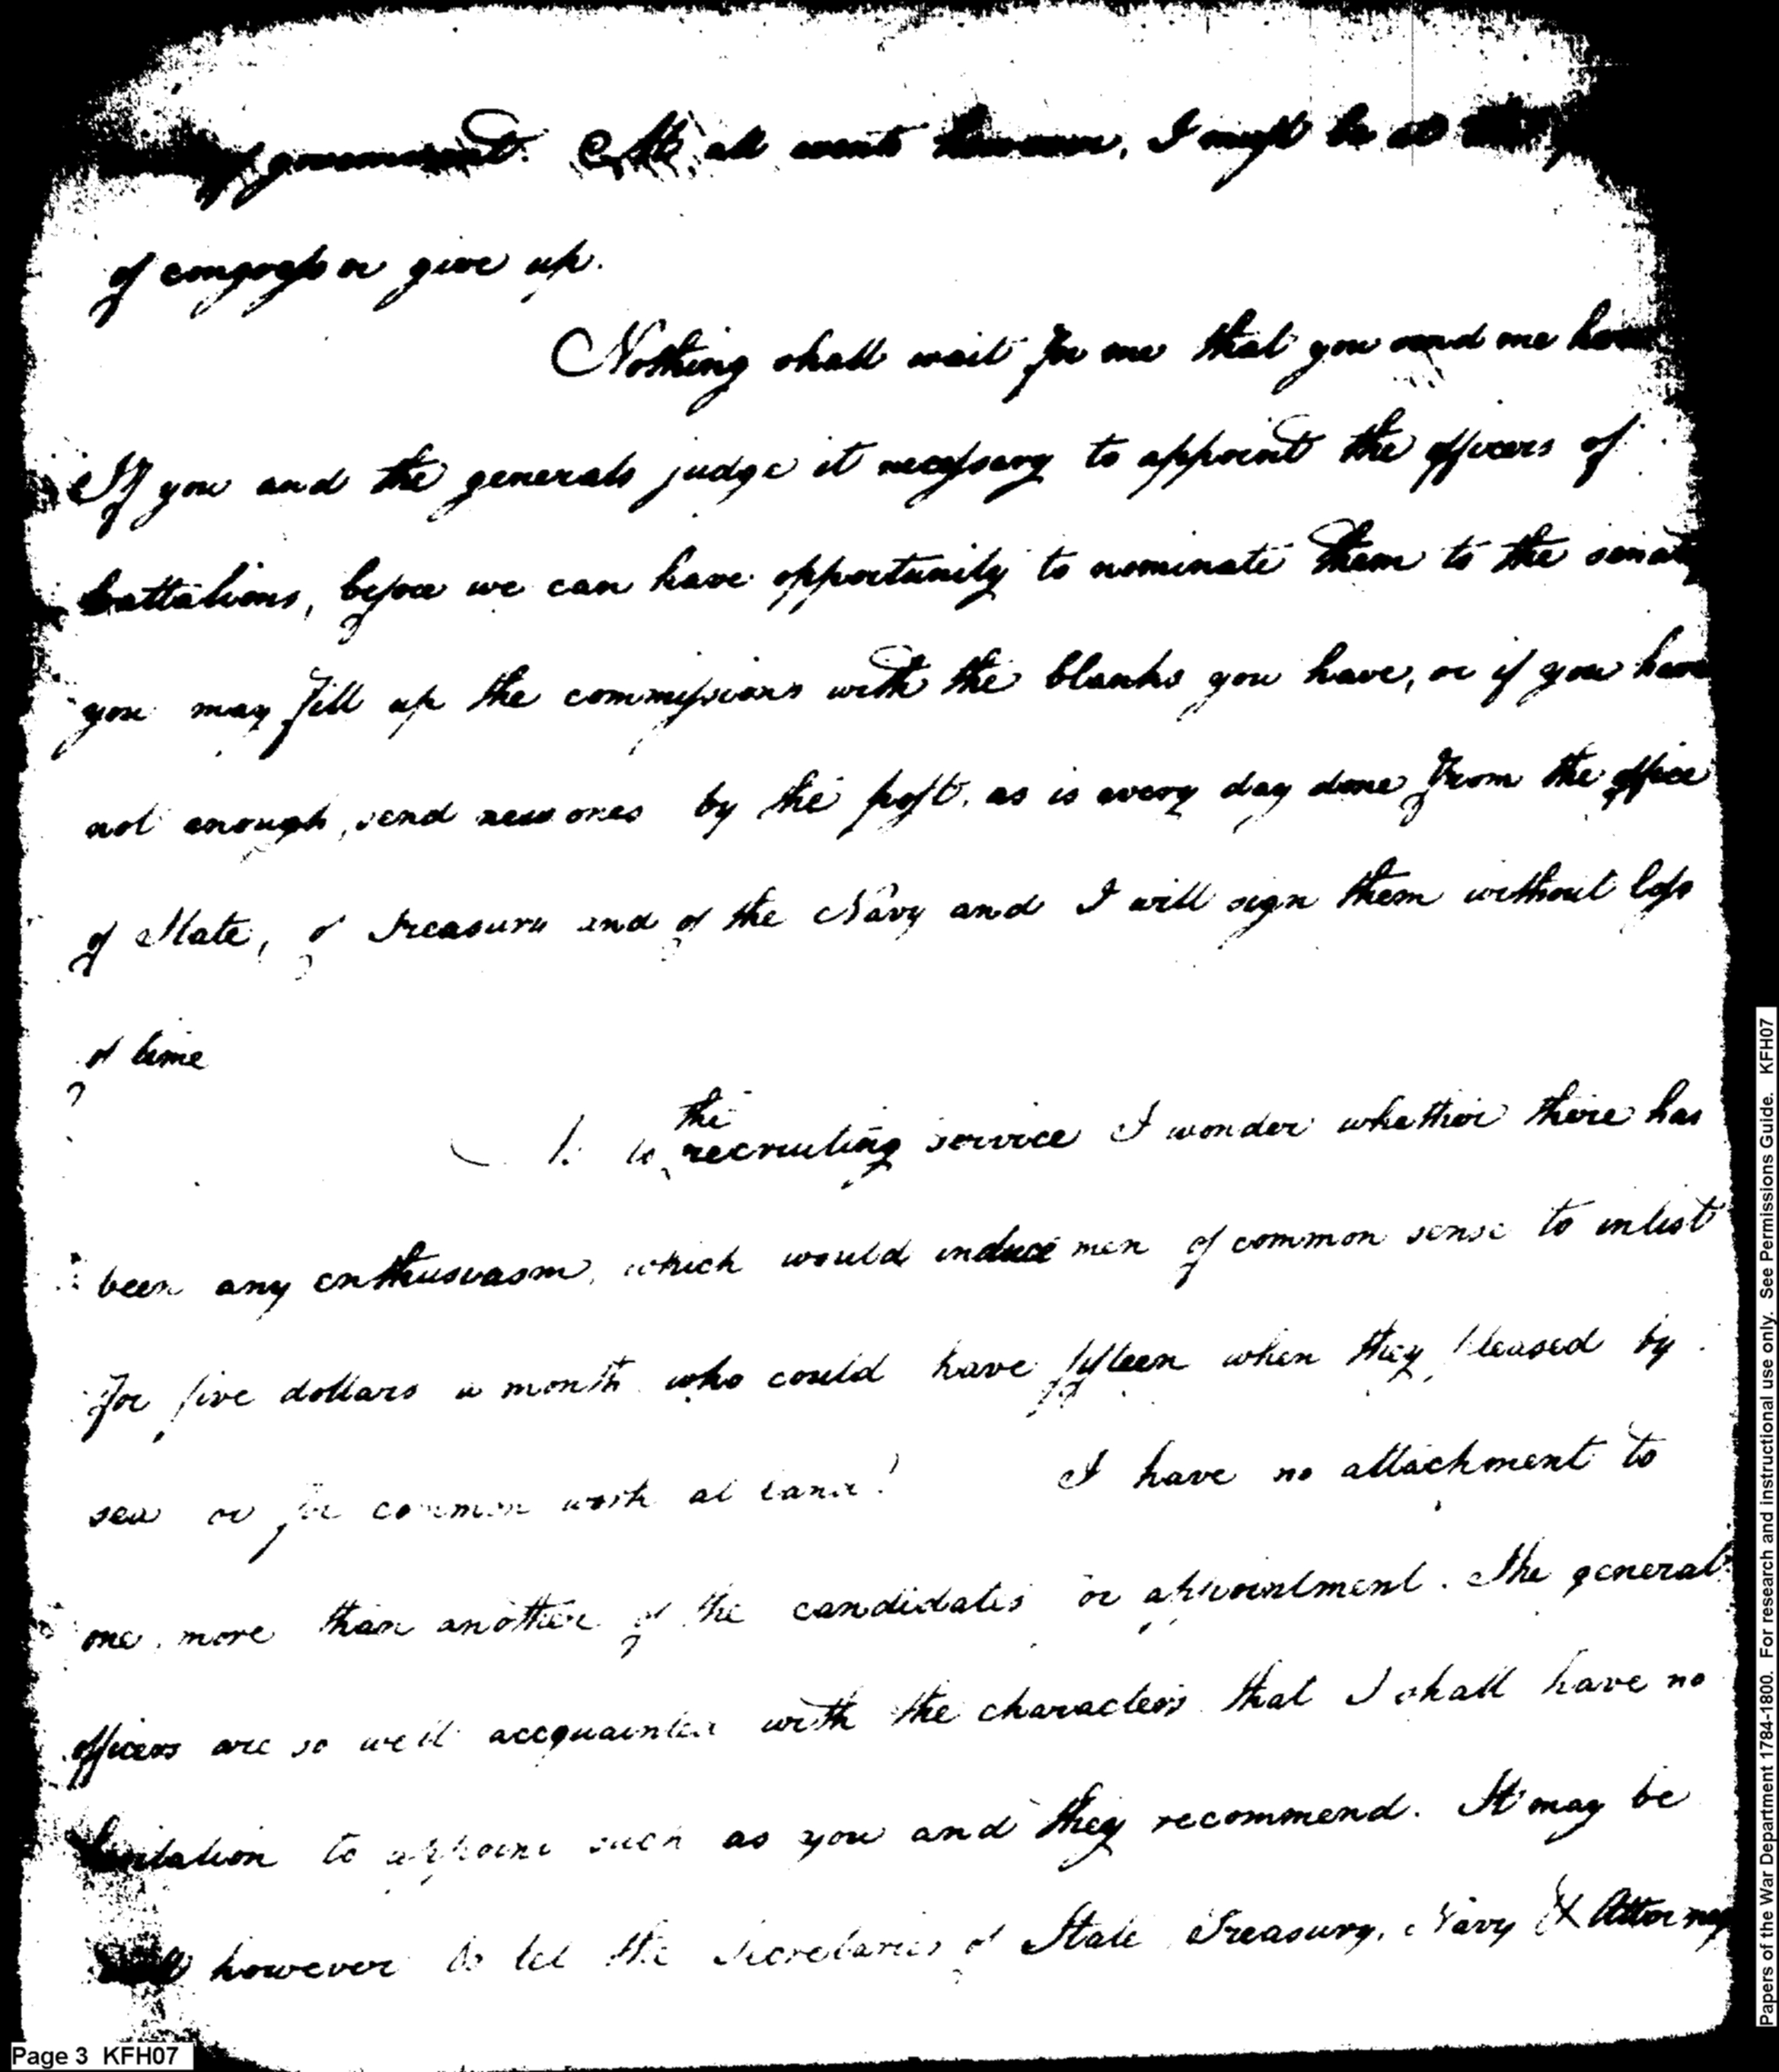 of government. At all events however, I must be at the
of congress or give up.
Nothing shall wait for me that you send me here
If you and the generals judge it necessary to appoint the officers of
battalions, before we can have opportunity to nominate them to the senate
you may fill up the commissions with the blanks you have, or if you have
not enough, send new ones by the post, as is every day done from the office
of State, of Treasury and of the Navy and I will sign them without loss
of time
the
As to recruiting service I wonder whether there has
been any enthusiasm, which would induce men of common sense to inlist
for five dollars a month who could have fifteen when they pleased by
sea or for common work at land! I have no attachment to
one more than another of the candidates or appointment. The general
officers are so well accquainted with the characters that I shall have no
hesitation to appoint such as you and they recommend. It may be
well however to let the Secretaries of State Treasury, Navy & Attorney
Page 3 KFH07
Papers of the War Department 1784-1800. For research and instructional use only. See Permissions Guide. KFH07